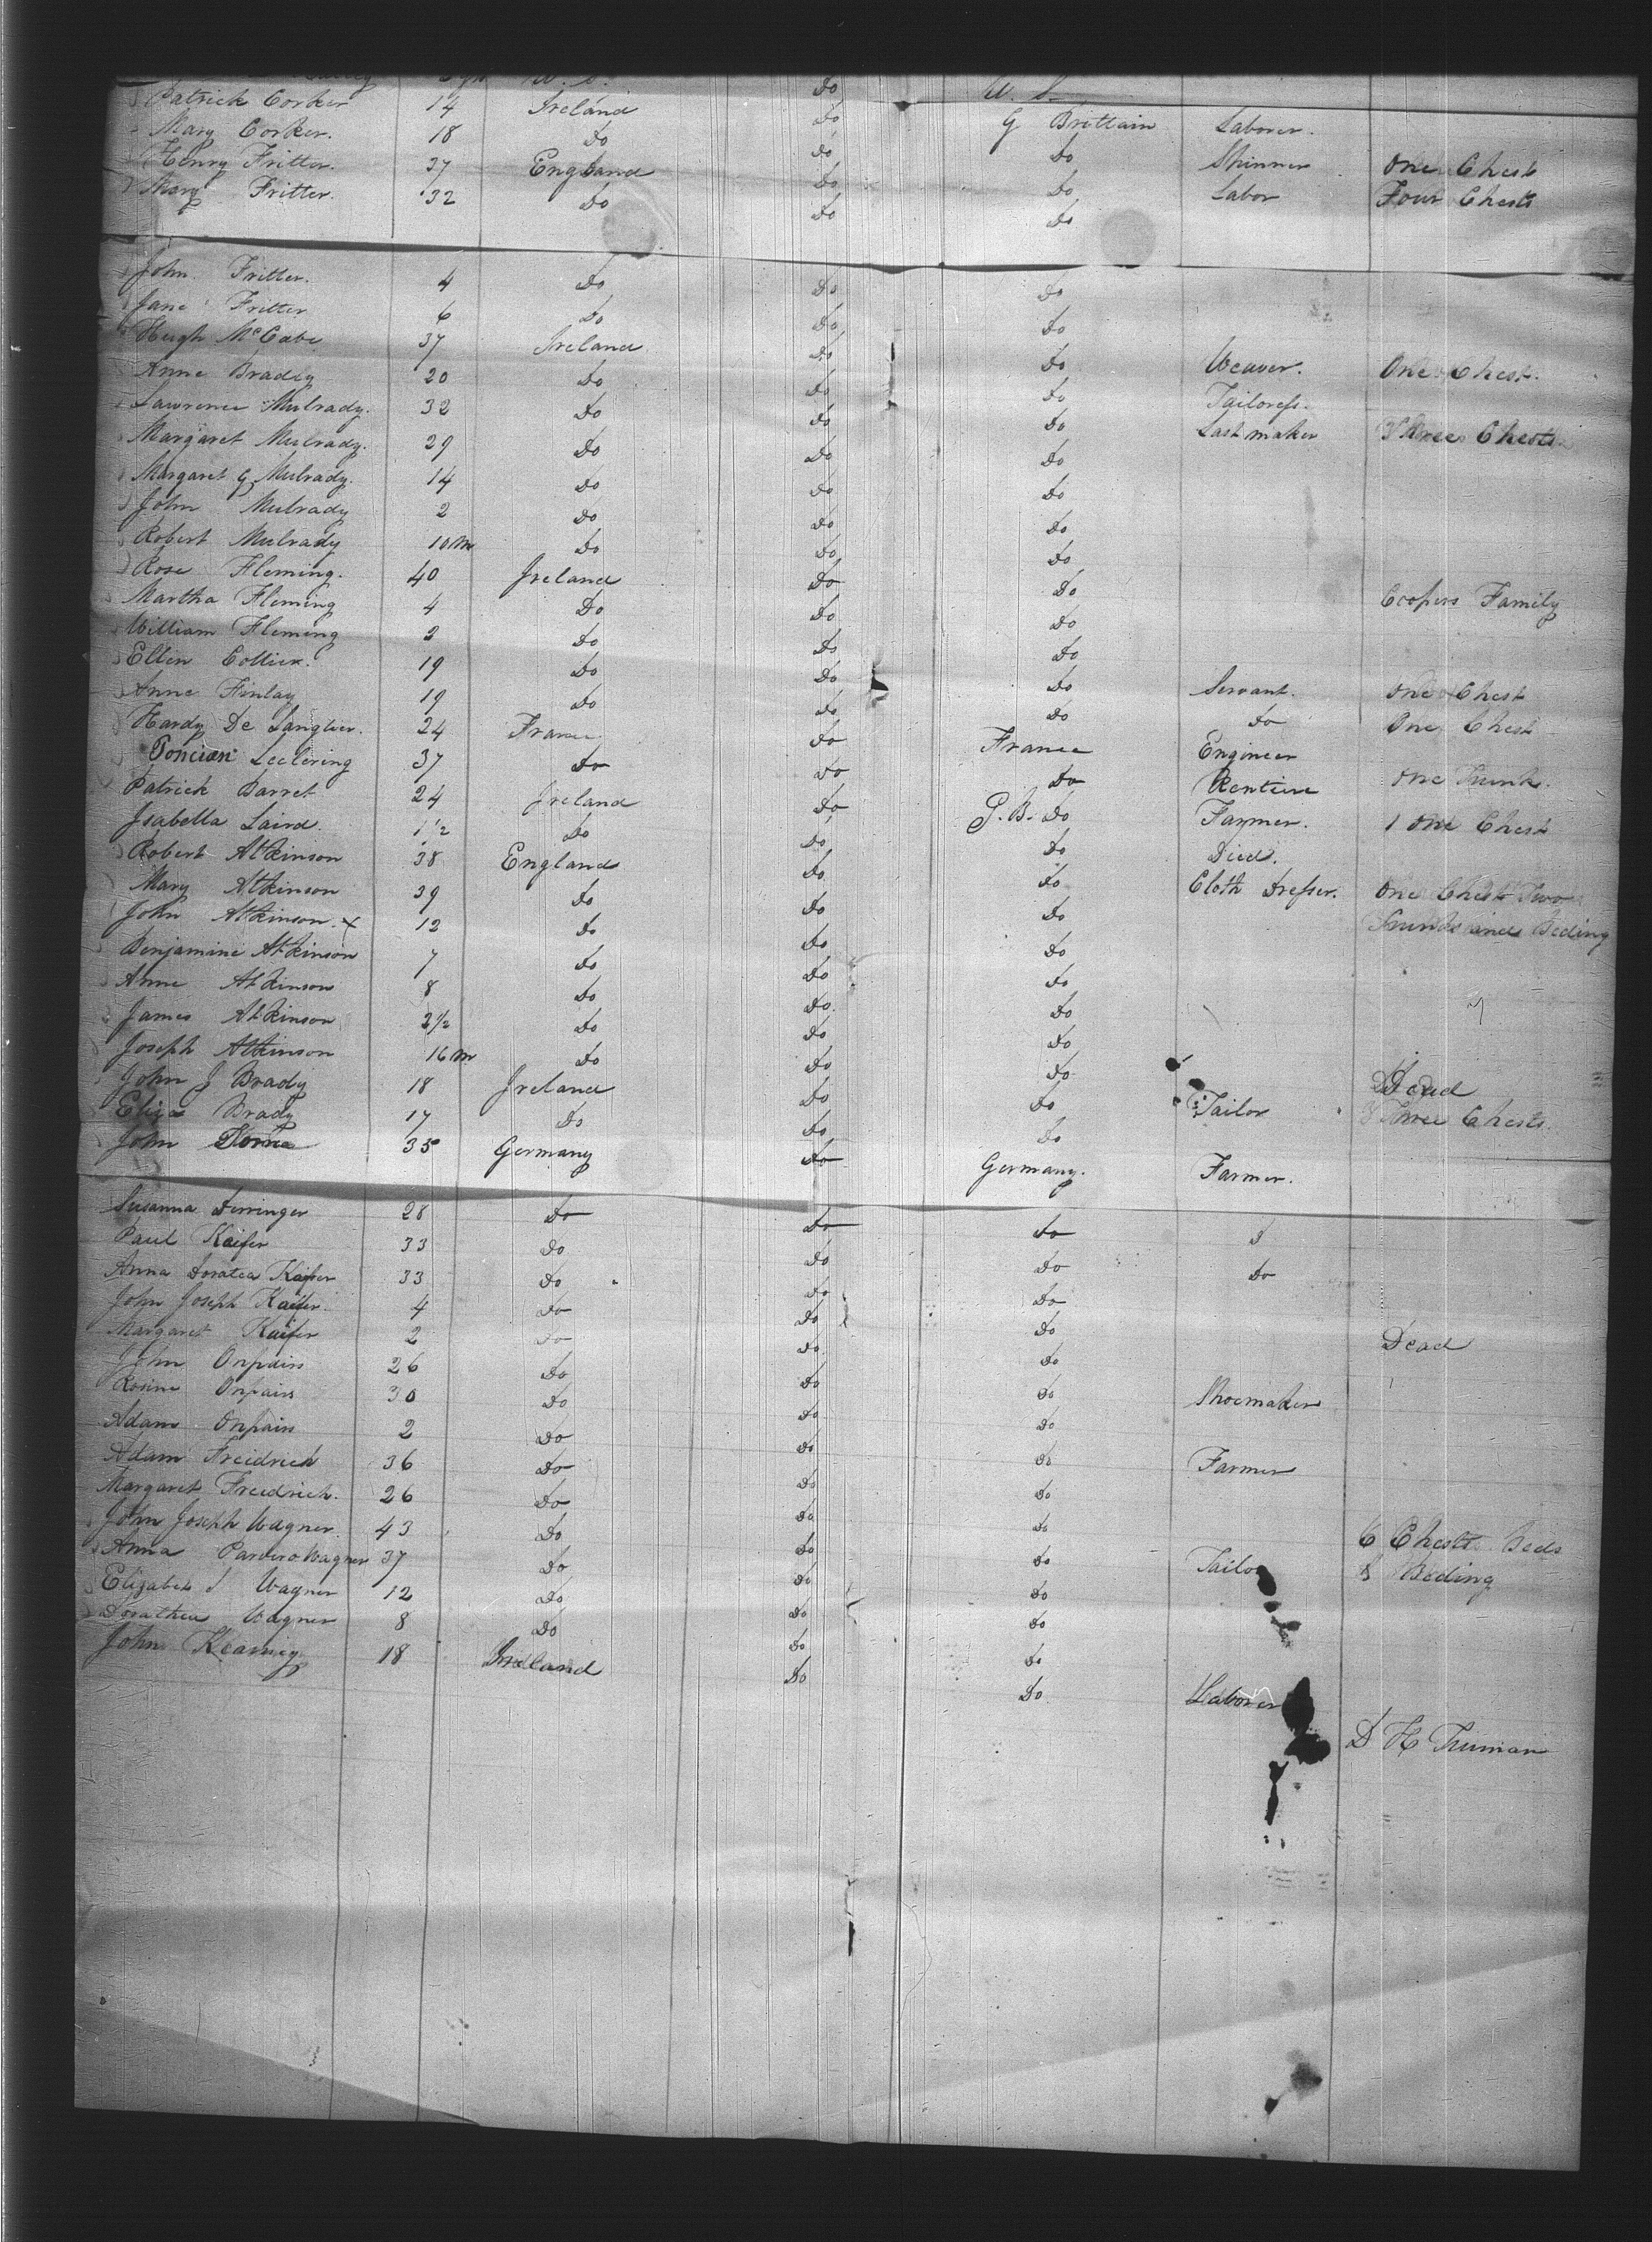 U. S. Do U. S.
Patrick Corker 14 Ireland Do G Brittain Laborer.
Mary Corker. 18 Do Do Do Spinner One Chest
Henry Fritter. 37 England Do Do Labor Four Chests
Mary Fritter. 32 Do Do Do
John Fritter. 4 Do Do Do
Jane Fritter 6 Do Do Do
Hugh McCabe 37 Ireland Do Do Weaver. One Chest.
Anne Brady 20 Do Do Do Tailoress.
Lawrence Mulrady. 32 Do Do Do Last maker Three Chests
Margaret Mulrady. 29 Do Do Do
Margaret G Mulrady. 14 Do Do Do
John Mulrady 2 Do Do Do
Robert Mulrady 10 m Do Do Do
Rose Fleming. 40 Ireland Do Do Coopers Family
Martha Fleming 4 Do Do Do
William Fleming 2 Do Do Do
Ellen Collier. 19 Do Do Do Servant. One Chest
Anne Finlay 19 Do Do Do Do One Chest
Hardy De Sanglier. 24 France Do France Engineer
Poncien Leclering 37 Do Do Do Rentire One Trunk.
Patrick Barret 24 Ireland Do G. B. Do Farmer. 1 One Chest
Isabella Laird. 1 1/2 Do Do Do Died.
Robert Atkinson 38 England Do Do Cloth Dresser. One Chest Two
Mary Atkinson 39 Do Do Do Trunks and Beding
John Atkinson. x 12 Do Do Do
Benjamine Atkinson 7 Do Do Do
Anne Atkinson 8 Do Do Do
James Atkinson 2 1/2 Do Do Do
Joseph Atkinson 16 m Do Do Do Dead
John J Brady 18 Ireland Do Do Tailor Three Chests.
Eliza Brady 17 Do Do Do
John 35 Germany Do Germany. Farmer.
Susanna Derringer 28 Do Do Do
Paul Kaifer 33 Do Do Do Do
Anna Doratea Kaifer 33 Do Do Do
John Joseph Kaifer. 4 Do Do Do Dead
Margaret Kaifer 2 Do Do Do
John Onpairs 26 Do Do Do Shoemaker
Rosine Onpairs 30 Do Do Do
Adam Onpairs 2 Do Do Do
Adam Freidrich 36 Do Do Do Farmer
Margaret Freedrich. 26 Do Do Do
John Joseph Wagner. 43 Do Do Do Tailor 6 Chests Beds
Anna Wagner 37 Do Do Do & Beding
Elizabeth J Wagner 12 Do Do Do
Dorathea Wagner 8 Do Do Do
John Kearney 18 Ireland Do Do Laborer
D H Truman